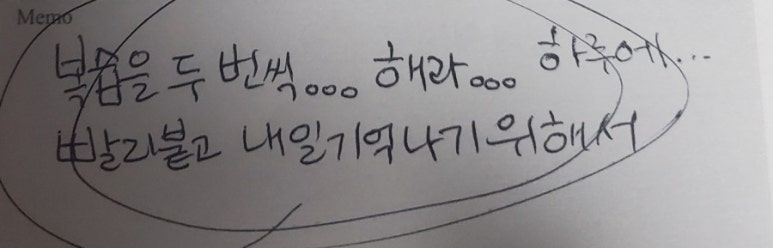 Memo
복습을 두 번씩... 해라... 하루에...
빨리붙고 내일기억나기위해서